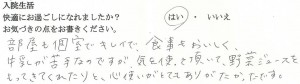 入院生活
快適にお過ごしになれましたか？ はい ・ いいえ
お気づきの点をお書きください。
部屋も個室でキレイで、食事もおいしく、
牛乳が苦手なのですが、気を使って頂いて、野菜ジュースを
もってきてくれたりと、心使いがとてもありがたかったです。